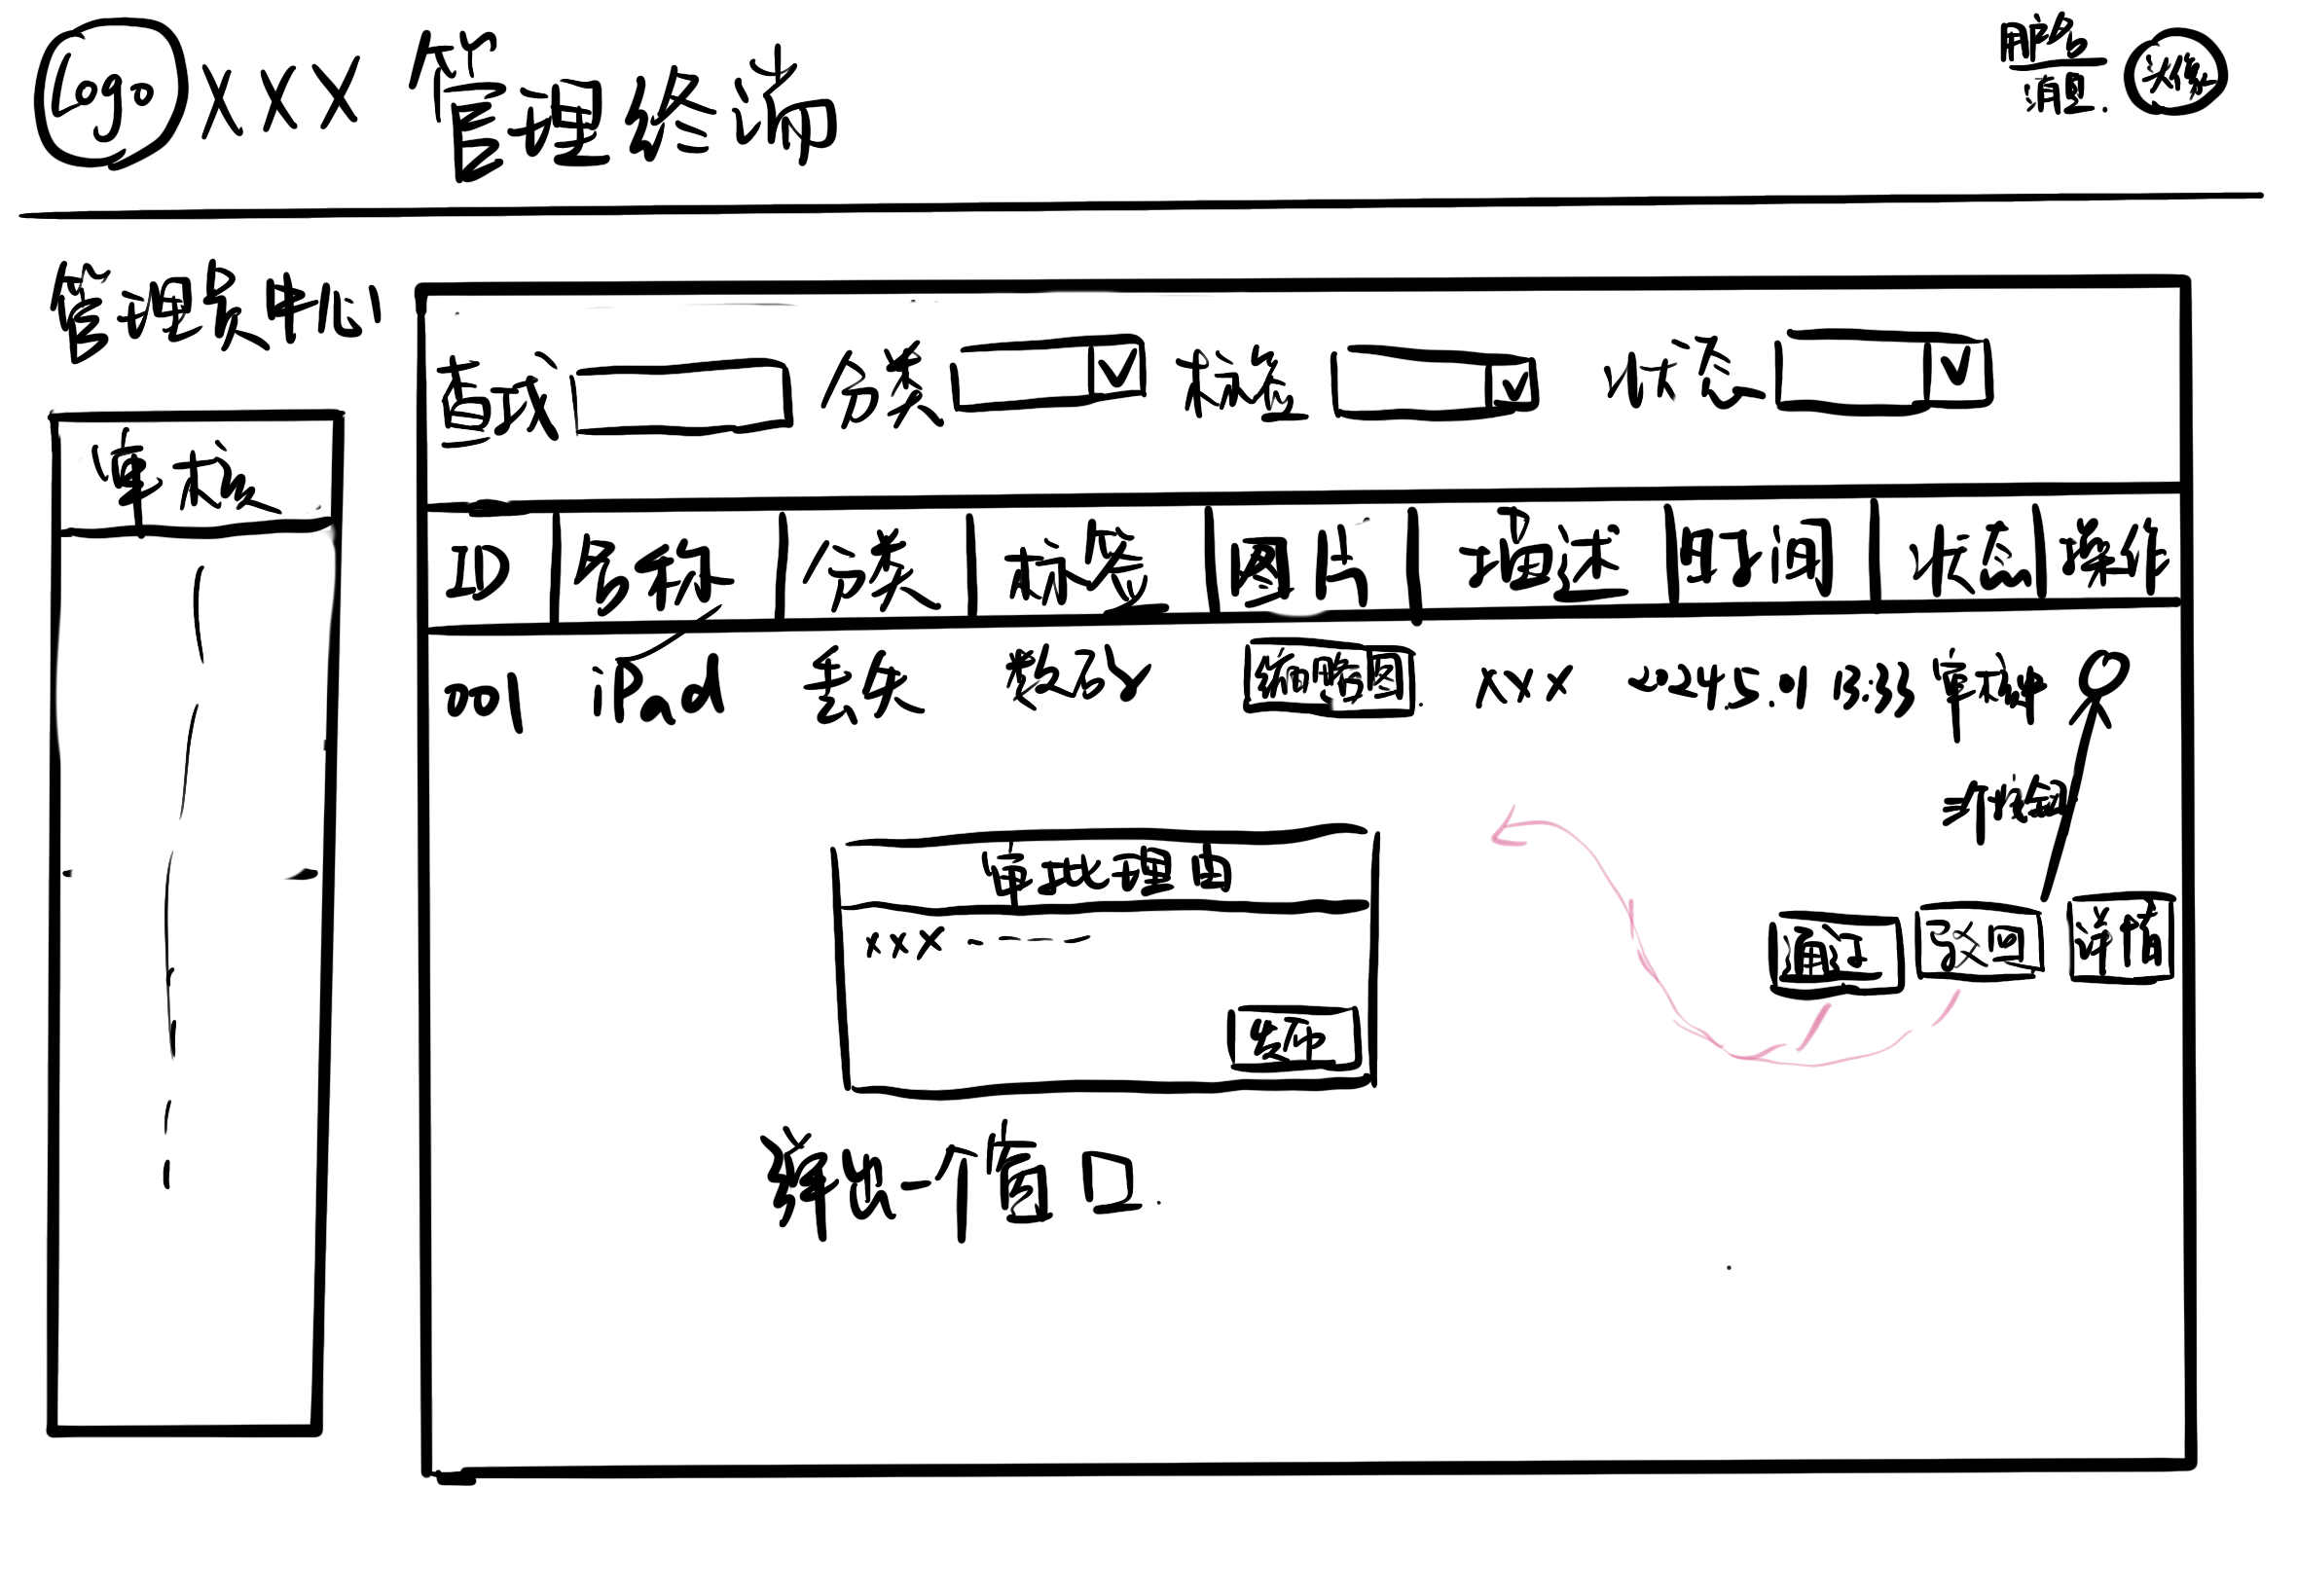 logo XXX 管理终端
消息
头像
管理员中心
查找 分类 标签 状态
审核
ID 名称 分类 标签 图片 描述 时间 状态 操作
001 iPad 丢失 数码 缩略图 XXX 2024.5.01 13:33 审核中
三个按钮
审批理由
通过 驳回 详情
xxx - - - -
弹出一个窗口.